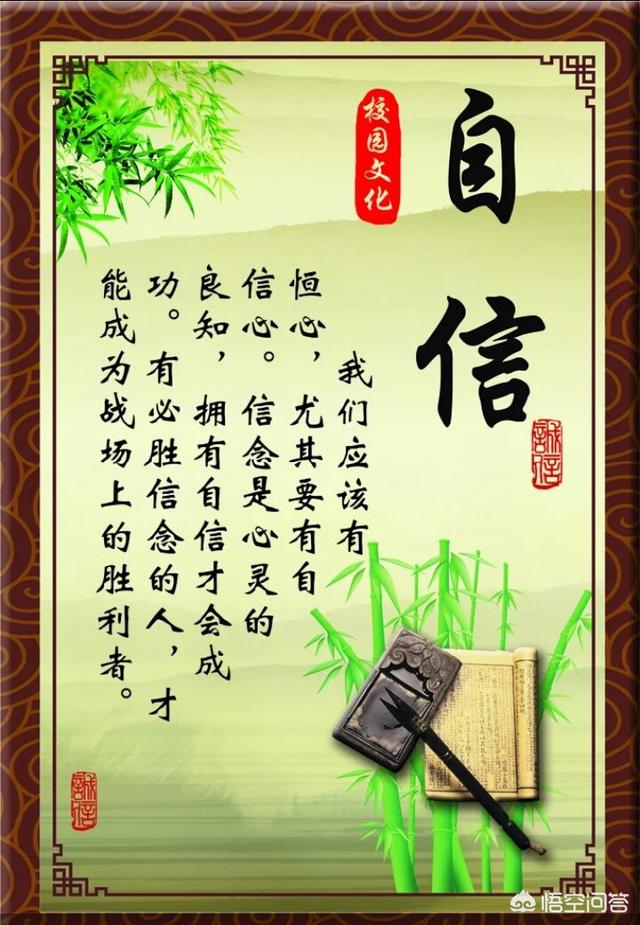 自信
校园文化
誠信
我们应该有
恒心，尤其要有自
信心。信念是心灵的
良知，拥有自信才会成
功。有必胜信念的人，才
能成为战场上的胜利者。
誠信
悟空问答